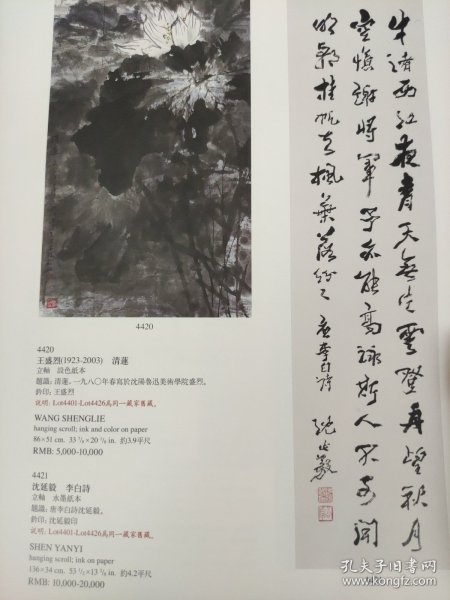 牛渚西江夜青天無片雲登舟望秋月
空憶謝將軍予亦能高詠斯人不可聞
明朝挂帆去楓葉落紛〻 唐李白詩 沈延毅
4420
4420
王盛烈(1923-2003) 清蓮
立軸 設色紙本
題識：清蓮。一九八〇年春寫於沈陽魯迅美術學院盛烈。
鈐印：王盛烈
說明：Lot4401-Lot4426爲同一藏家舊藏。
WANG SHENGLIE
hanging scroll; ink and color on paper
86×51 cm. 33 7/8×20 1/8 in. 約3.9平尺
RMB: 5,000-10,000
4421
沈延毅 李白詩
立軸 水墨紙本
題識：唐李白詩沈延毅。
鈐印：沈延毅印
說明：Lot4401-Lot4426爲同一藏家舊藏。
SHEN YANYI
hanging scroll; ink on paper
136×34 cm. 53 1/2×13 3/8 in. 約4.2平尺
RMB: 10,000-20,000
孔夫子旧书网